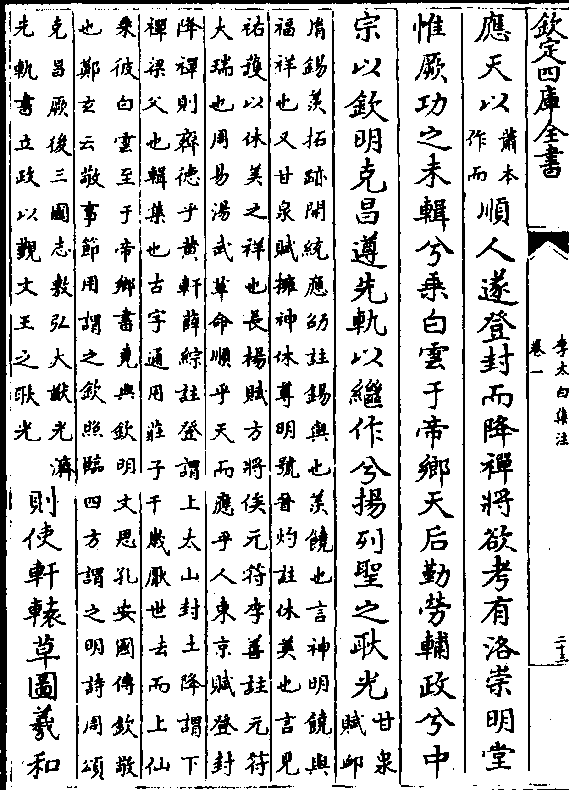 欽定四庫全書
李太白集注
卷一
二十三
應天以蕭本作而順人遂登封而降禪將欲考有洛崇明堂
惟厥功之未輯兮乘白雲于帝鄉天后勤勞輔政兮中
宗以欽明克昌遵先軌以繼作兮揚列聖之耿光甘泉賦卹
胤錫羨拓跡開統應劭註錫與也羨饒也言神明饒與
福祥也又甘泉賦擁神休尊明號晉灼註休美也言見
祐護以休美之祥也長楊賦方將俟元符李善註元符
大瑞也周易湯武革命順乎天而應乎人東京賦登封
降禪則齊德乎黄軒薛綜註登謂上太山封土降謂下
禪梁父也輯集也古字通用莊子千歲厭世去而上仙
乘彼白雲至于帝鄉書堯典欽明文思孔安國傳欽敬
也鄭玄云敬事節用謂之欽照臨四方謂之明詩周頌
克昌厥後三國志敷弘大猷光濟
先軌書立政以觀文王之耿光則使軒轅草圖羲和